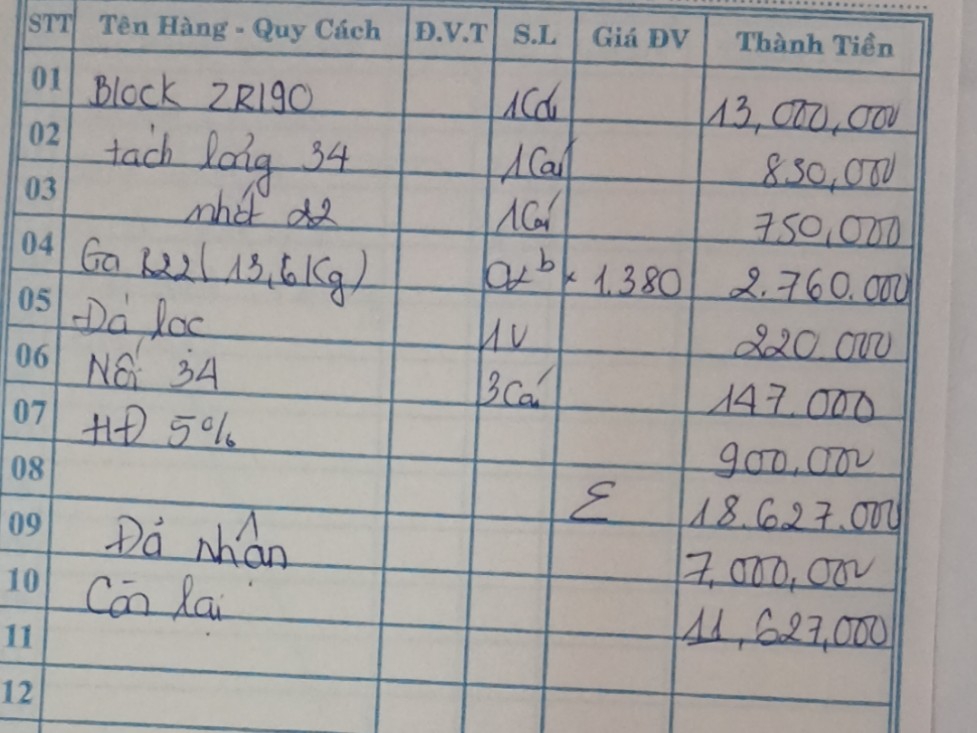 STT Tên Hàng - Quy Cách Đ.V.T S.L Giá ĐV Thành Tiền
01 Block ZR190 1Cái 13,000,000
02 tách lỏng 34 1Cái 830,000
03 nhớt 22 1Cái 750,000
04 Ga R22 (13,6 Kg) 02b x 1.380 2.760.000
05 Đá lọc 1V 220.000
06 Nối 34 3Cái 147.000
07 HĐ 5% 900,000
08 Σ 18.627.000
09 Đã nhận 7,000,000
10 Còn lại 11,627,000
11
12